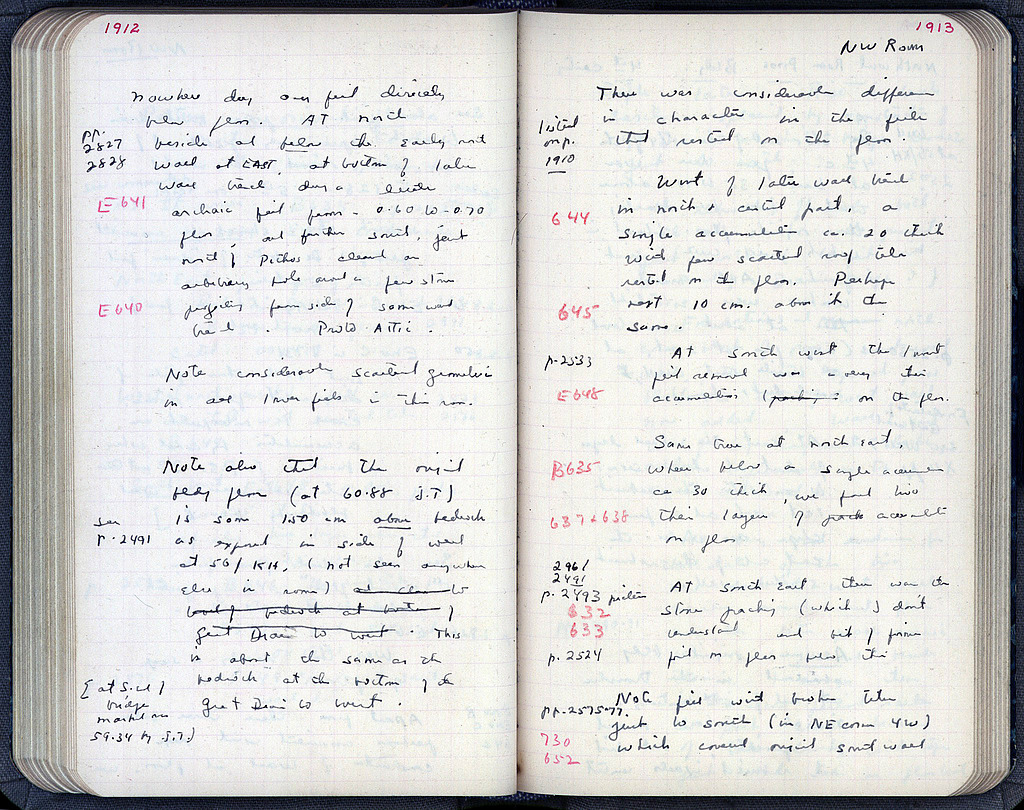 1912
Nowhere does our fill directly
below floor. At north
pp. 2827 2828
beside and below the early north
wall at EAST, at bottom of later
wall trench does a little
E641
archaic fill from - 0.60 to -0.70
floor, and further south, just
north of Pithos cleared an
arbitrary hole around a few stones
E640
projecting from side of same wall
trench. Proto Attic.
Note considerable scattered geometric
in all lower fills in this room.
Note also that the original
floor (at 60.88 S.T)
is some 1.50 cm above bedrock
see p. 2491
as exposed in side of well
at 56/KH, (not seen anywhere
else in room) to
level of bedrock at bottom of
Great Drain to west. This
is about the same as the
bedrock at the bottom of the
Great Drain to west.
[at S. end of bridge marked on 59.34 by S.T.)
1913
NW Room
There was considerable difference
listed on p. 1910
in character in the fills
that rested on the floor.
West of later wall trench
644
in north & central part, a
single accumulation ca. 20 thick
with few scattered roof tiles
rested on the floor. Perhaps
645
next 10 cm. above it the
same.
p. 2533
At south west the lowest
fill removed was a very thin
E648
accumulation (packing) on the floor.
Same true at north east,
B635
where below a single accumulation
ca 30 thick, we find two
637 & 638
thin layers of accumulation
on floor
2961
2491
p. 2493 picture
At south east there was the
632
stone packing (which I don't
633
understand and bit of
p. 2524
fill on floor this
Note fill with broken tiles
pp. 2575-77.
just to south (in NE corner 4W)
730
which covered original south wall
652